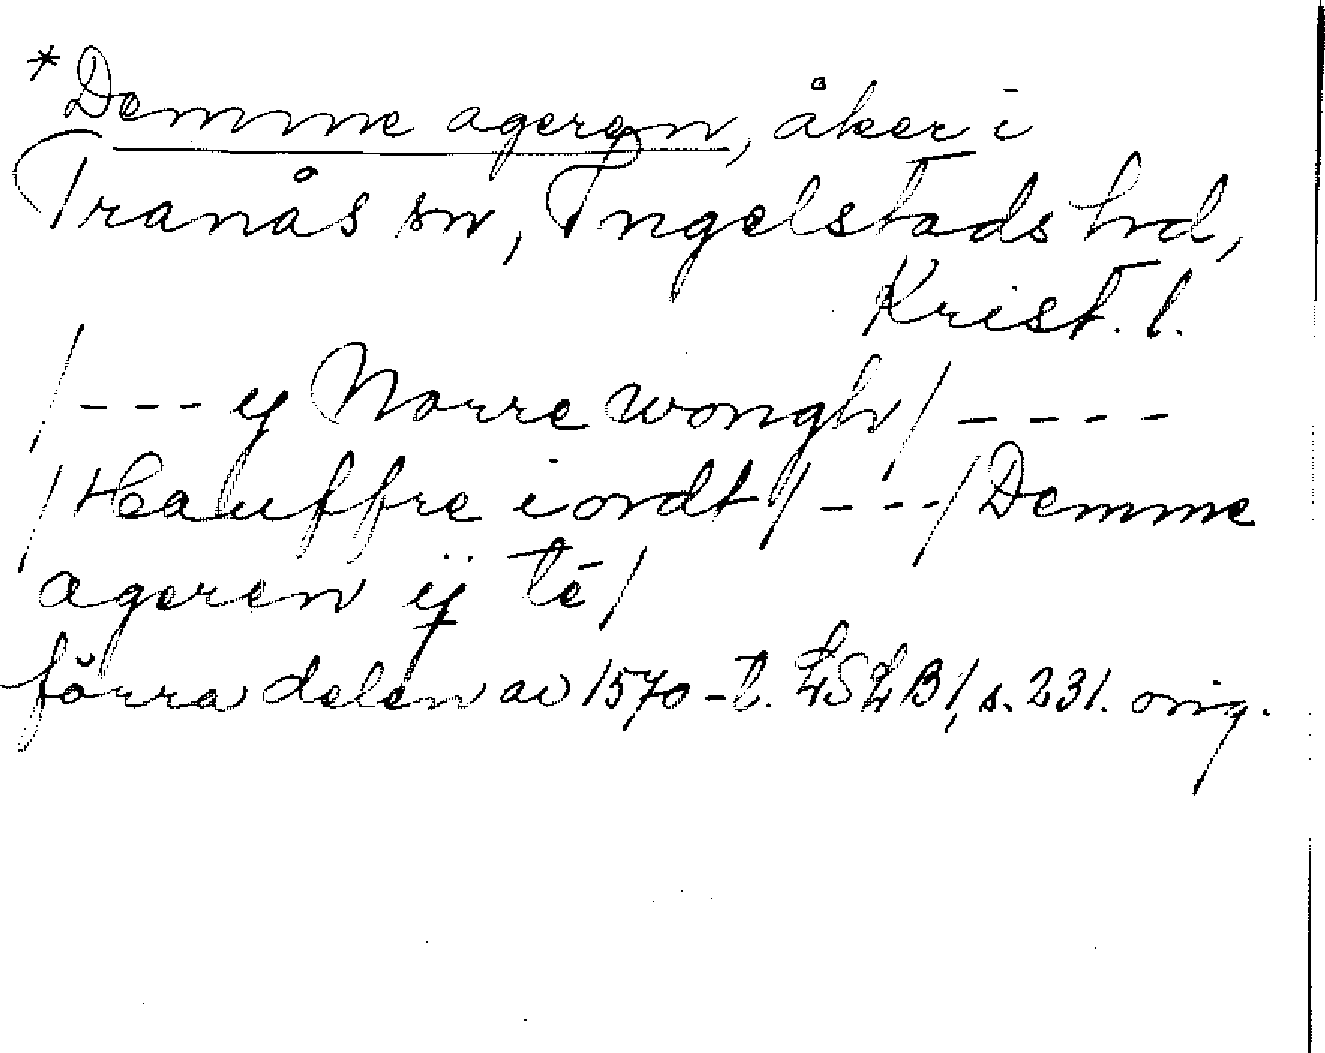 *Demme ageren, åker i
Tranås sn, Ingelstads hd,
Krist. l.
/--- y Norre wongh/ ----
/Hauffre iordt/ ---/Demme
ageren ij té/
förra delen av 1570-t. LSLB1, s. 231. orig.